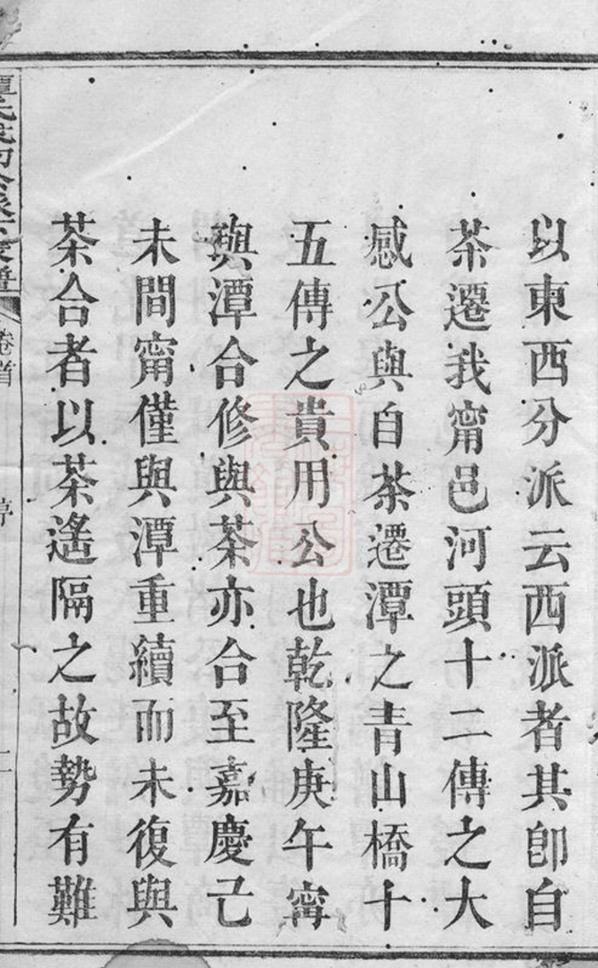 以東西分派云西派者其卽自
茶遷我甯邑河頭十二傳之大
感公與自茶遷潭之青山橋十
五傳之貴用公也乾隆庚午甯
與潭合修與茶亦合至嘉慶己
未間甯僅與潭重續而未復與
茶合者以茶遙隔之故勢有難
卷首